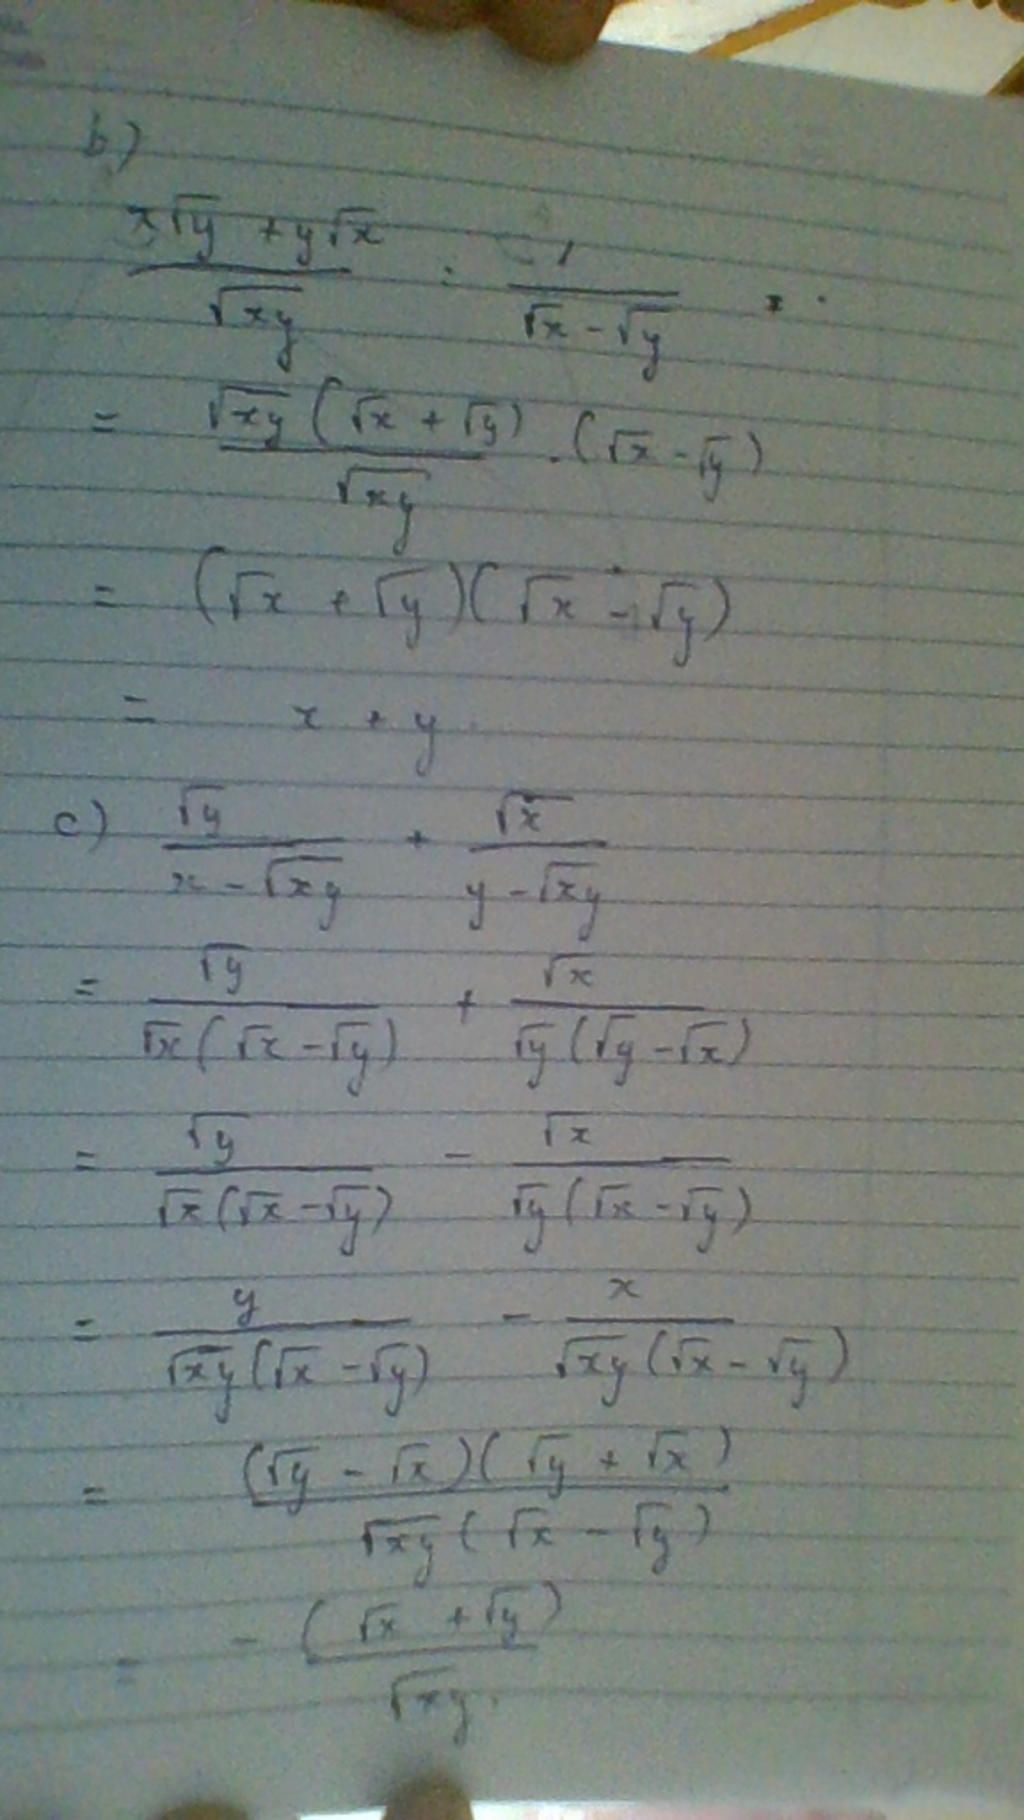 b)
x√y + y√x / √xy : 1 / √x - √y
= √xy (√x + √y) / √xy . (√x - √y)
= (√x + √y)(√x - √y)
= x + y
c) √y / x - √xy + √x / y - √xy
= √y / √x(√x - √y) + √x / √y(√y - √x)
= √y / √x(√x - √y) - √x / √y(√x - √y)
= y / √xy(√x - √y) - x / √xy(√x - √y)
= (√y - √x)(√y + √x) / √xy(√x - √y)
= - (√x + √y) / √xy.